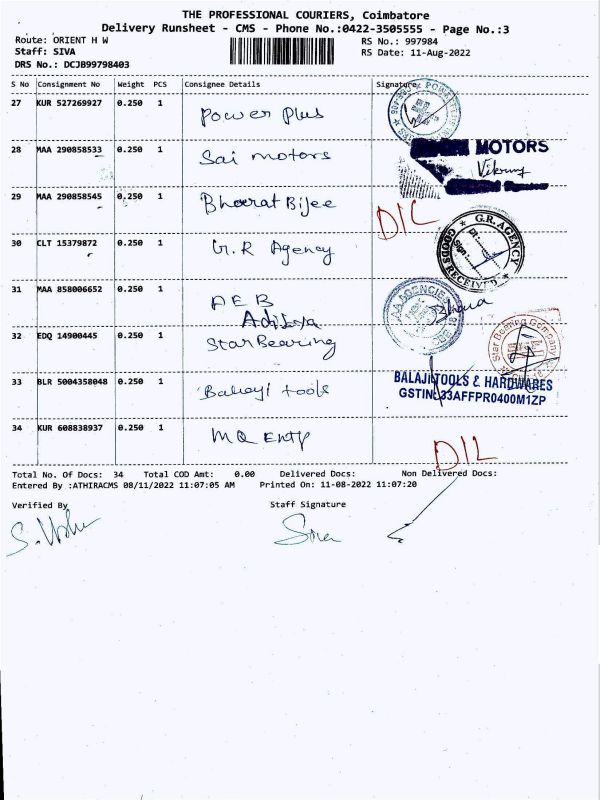 THE PROFESSIONAL COURIERS, Coimbatore
Delivery Runsheet - CMS - Phone No.:0422-3505555 - Page No.:3
Route: ORIENT H W
RS No.: 997984
Staff: SIVA
RS Date: 11-Aug-2022
DRS No.: DCJB99798403
S No Consignment No Weight PCS Consignee Details Signature
27 KUR 527269927 0.250 1 Power Plus
28 MAA 290858533 0.250 1 Sai motors
MOTORS
29 MAA 290858545 0.250 1 Bharat Bijee
D/L
30 CLT 15379872 0.250 1 G.R Agency
G.R. AGENCY
GOODS RECEIVED
Sign:
31 MAA 858006652 0.250 1 AEB
Aditya
32 EDQ 14900445 0.250 1 Star Bearing
Star Bearing Company
33 BLR 5004358048 0.250 1 Balaji tools
BALAJI TOOLS & HARDWARES
GSTIN: 33AFFPR0400M1ZP
34 KUR 608838937 0.250 1 MQ Entp
D/L
Total No. Of Docs: 34 Total COD Amt: 0.00 Delivered Docs: Non Delivered Docs:
Entered By :ATHIRACMS 08/11/2022 11:07:05 AM Printed On: 11-08-2022 11:07:20
Verified By
Staff Signature
Siva